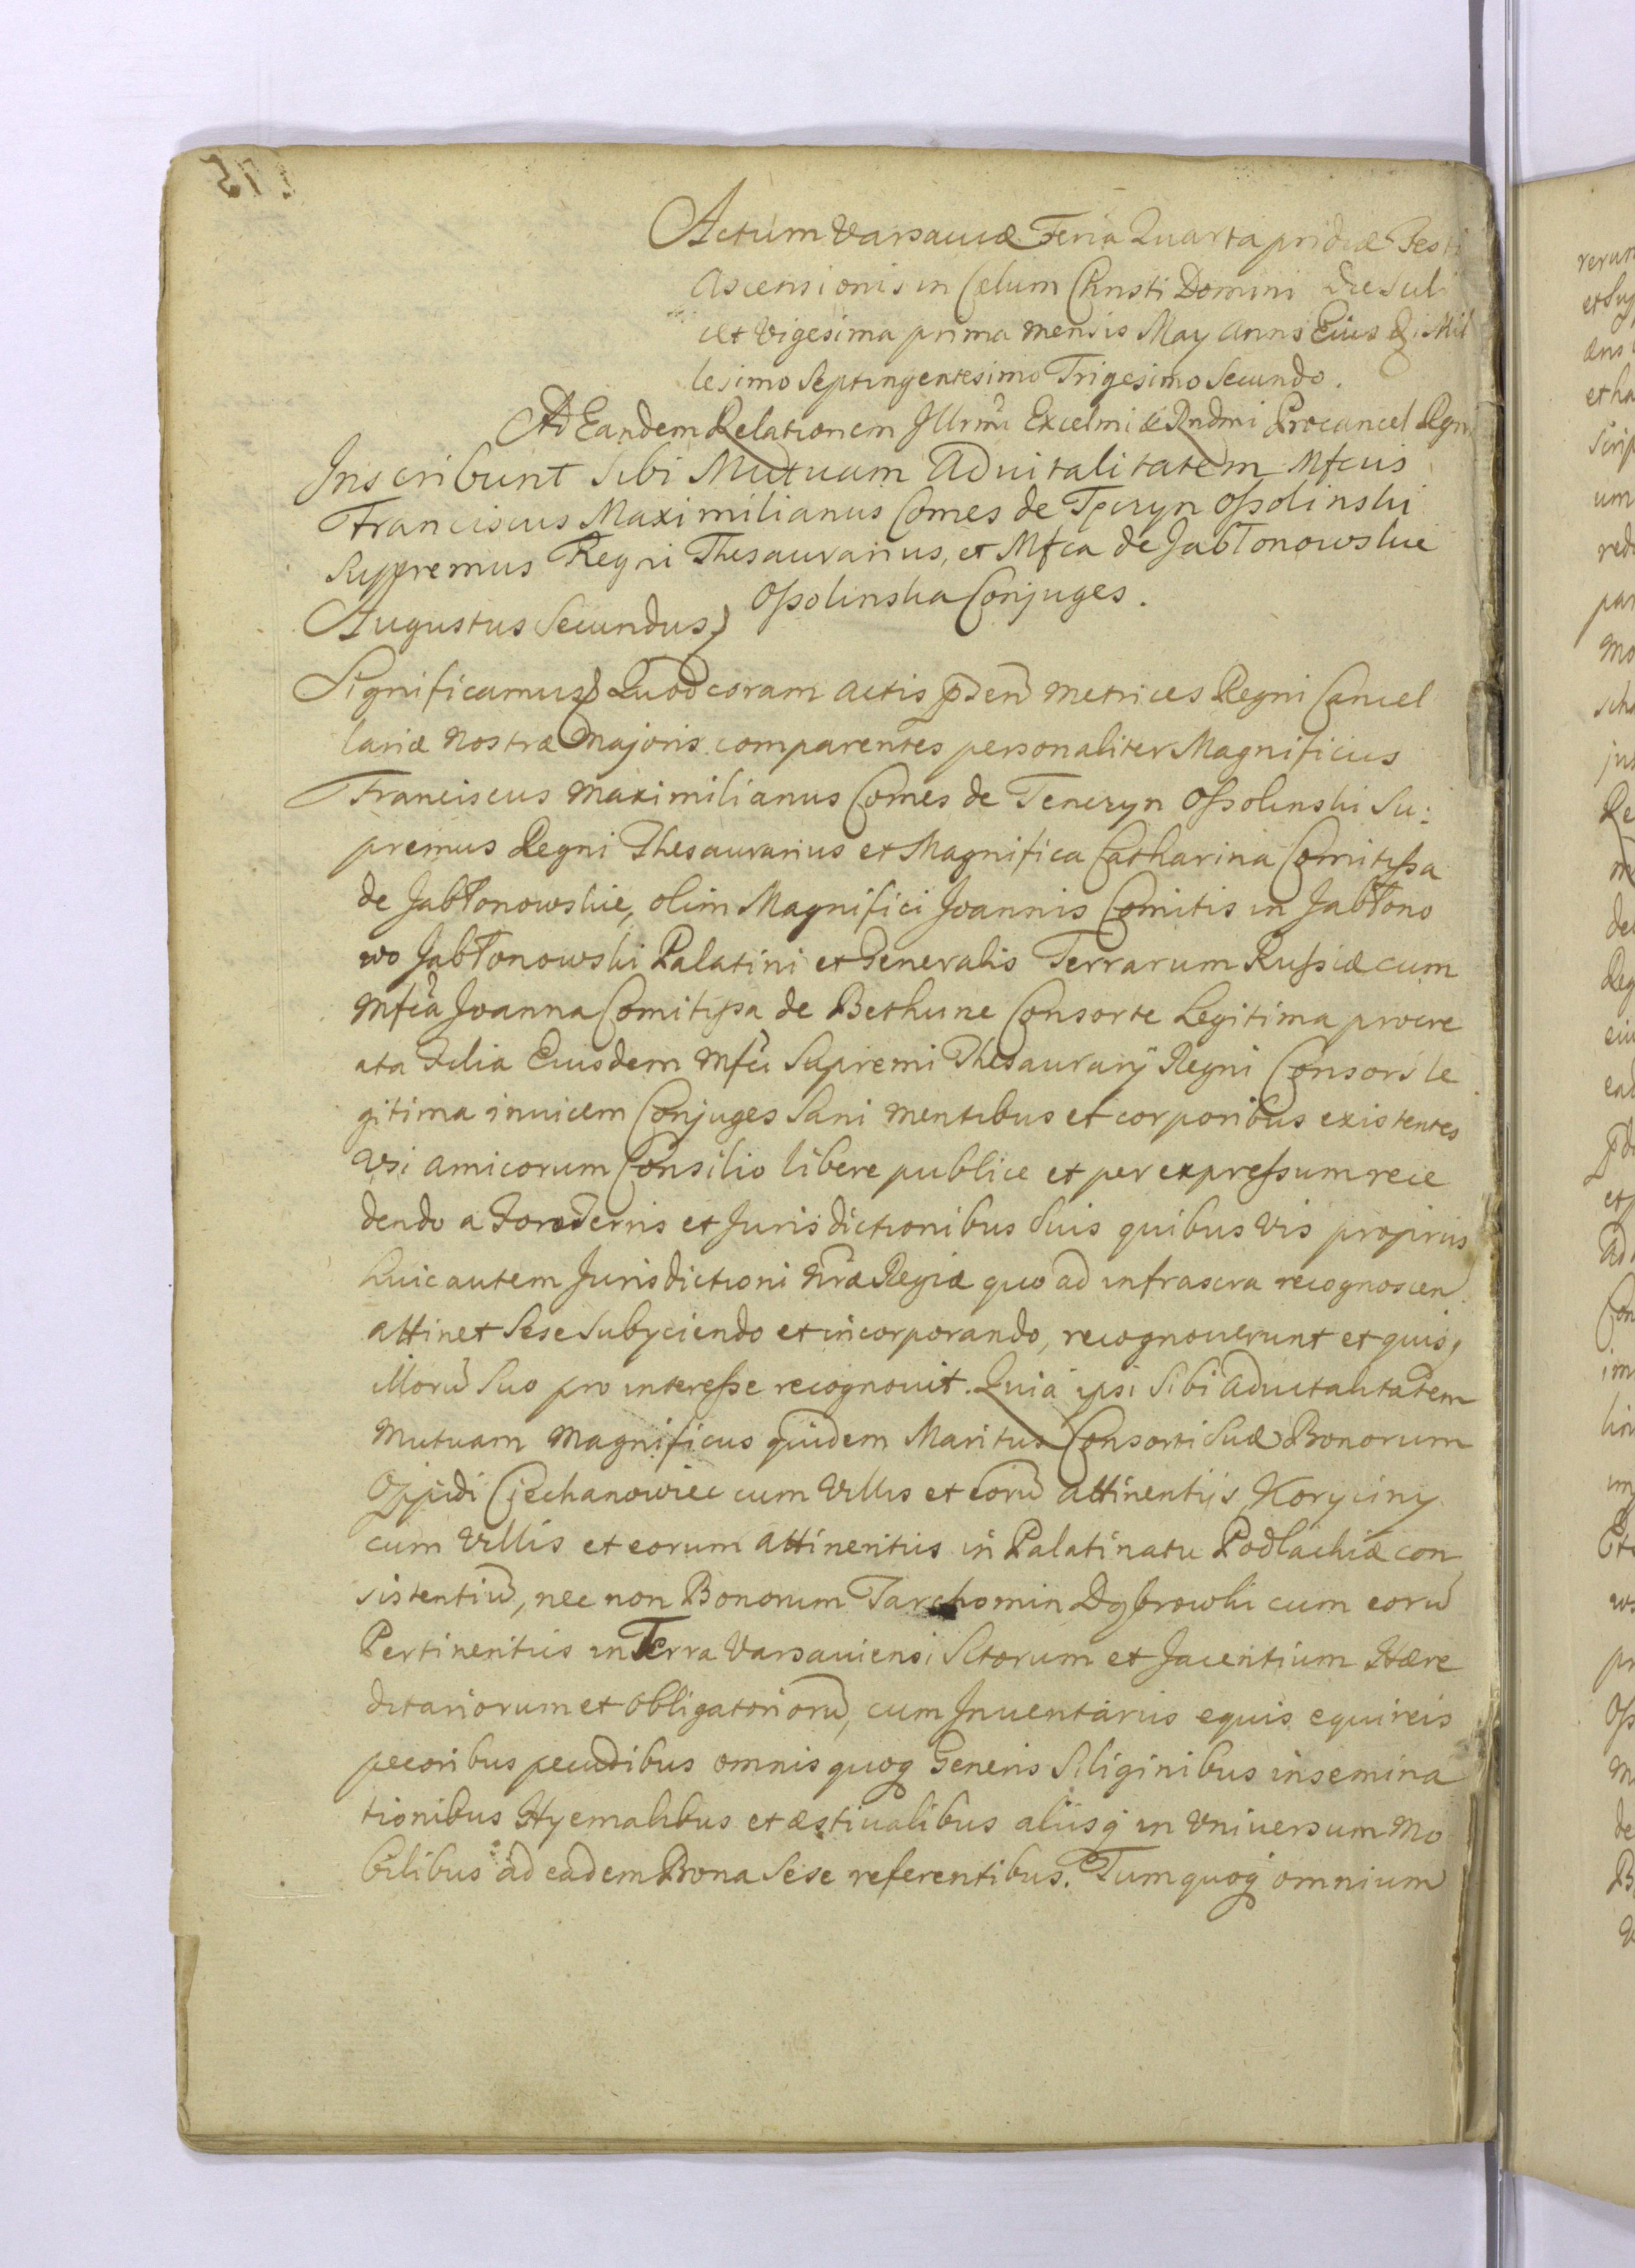 Actum Varsaviæ Feria Quarta pridiæ Festi
Ascensionis in Cælum Christi Domini die scili
cet Vigesima prima mensis May Anno Eius Di Mil
lesimo Septingentesimo Trigesimo Secundo.
Ad Eandem Relationem Illrmi Excelmi & Rndmi Procancel Regni
Inscribunt Sibi Mutuam Advitalitatem Mfcus
Franciscus Maximilianus Comes de Tęczyn Ossolinski
Supremus Regni Thesaurarius, et Mfca de Jabłonowskie
Ossolinska Conjuges.
Augustus Secundus
Significamus Quod coram actis psen metrices Regni Cancel
lariæ nostræ Majoris comparentes personaliter Magnificus
Franciscus Maximilianus Comes de Tenczyn Ossolinski Su:
premus Regni Thesaurarius et Magnifica Catharina Comitissa
de Jabłonowskie, olim Magnifici Joannis Comitis in Jabłono
wo Jabłonowski Palatini et Generalis Terrarum Russiæ cum
Mfca Joanna Comitissa de Bethune Consorte Legitima procre
ata Filia Eiusdem Mfci Supremi Thesaurarij Regni Consors le
gitima invicem Conjuges Sani mentibus et corporibus existentes
Vsi amicorum Consilio libere publice et per expressum rece
dendo a Foro Terris et Jurisdictionibus Suis quibus vis propriis
huic autem Jurisdictioni nræ Regiæ quo ad infrascra recognoscen
attinet Sese Subyciendo et incorporando, recognoverunt et quisq
illorũ Suo pro interesse recognovit. Quia ipsi Sibi advitalitatem
Mutuam Magnificus quidem Maritus Consorti Suæ Bonorum
Oppidi Ciechanowiec cum Villis et eorũ attinentijs Koryciny
cum Villis et eorum attinentiis in Palatinatu Podlachiæ con
sistentiũ, nec non Bonorum Tarchomin Dąbrowki cum eorũ
Pertinentiis in Terra Varsaviensi Sitorum et Jacentium Hære
ditariorum et obligatoriorũ, cum Inventariis equis equireis
pecoribus pecudibus omnis quoq Generis Siliginibus insemina
tionibus Hyemalibus et æstivalibus aliisq in Vniversum Mo
bilibus ad eadem Bona Sese referentibus. Tum quoq omnium